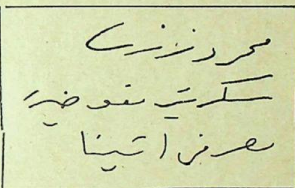 محمود
سكرتير مفوضية
مصر فى اتينا